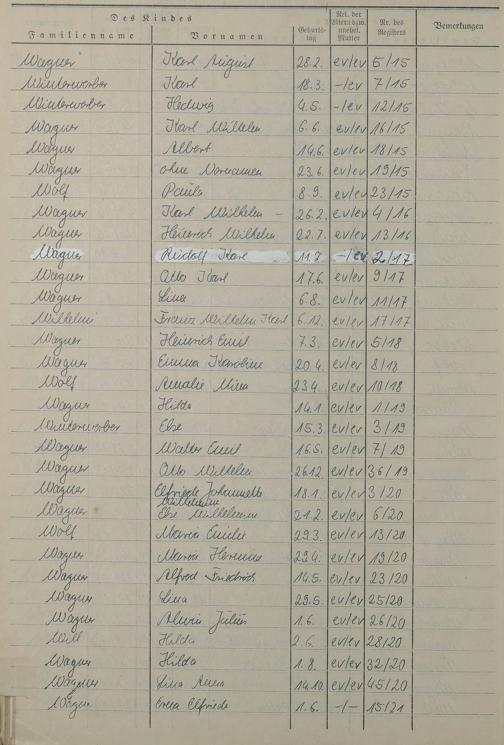 Des Kindes
Familienname Vornamen Geburts-tag Rel. der Eltern bzw. unehel. Mutter Nr. des Registers Bemerkungen
Wagner Karl August 28.2. ev/ev 5/15
Winterwerber Karl 18.3. -/ev 7/15
Winterwerber Hedwig 4.5. -/ev 12/15
Wagner Karl Wilhelm 6.6. ev/ev 16/15
Wagner Albert 14.6. ev/ev 18/15
Wagner ohne Vornamen 23.6 ev/ev 19/15
Wolf Paula 8.9. ev/ev 23/15
Wagner Karl Wilhelm - 26.2. ev/ev 4/16
Wagner Heinrich Wilhelm 22.7. ev/ev 13/16
Wagner Rudolf Karl -/ev 2/17
Wagner Otto Karl 17.6. ev/ev 9/17
Wagner Lina 6.8. ev/ev 11/17
Wilhelmi Franz Wilhelm Karl 6.12. ev/ev 17/17
Wagner Heinrich Emil 7.3. ev/ev 5/18
Wagner Emma Karoline 20.4. ev/ev 8/18
Wolf Amalie Mina 23.4. ev/ev 10/18
Wagner Hilda 14.1. ev/ev 1/19
Winterwerber Else 15.3. ev/ev 3/19
Wagner Walter Emil 16.5. ev/ev 7/19
Wagner Otto Wilhelm 26.12. ev/ev 36/19
Wagner Elfriede Johannette 18.1. ev/ev 3/20
Wilhelmine
Wagner Else Wilhelmine 21.2. ev/ev 6/20
Wolf Maria Emilie 29.3. ev/ev 13/20
Wagner Maria Hermine 29.4. ev/ev 19/20
Wagner Alfred Friedrich 14.5. ev/ev 23/20
Wagner Lina 29.5. ev/ev 25/20
Wagner Alwin Julius 1.6. ev/ev 26/20
Will Hilda 2.6. ev/ev 28/20
Wagner Hilda 1.8. ev/ev 32/20
Wagner Lina Anna 14.10. ev/ev 45/20
Wagner Erna Elfriede 1.6. -/- 15/21